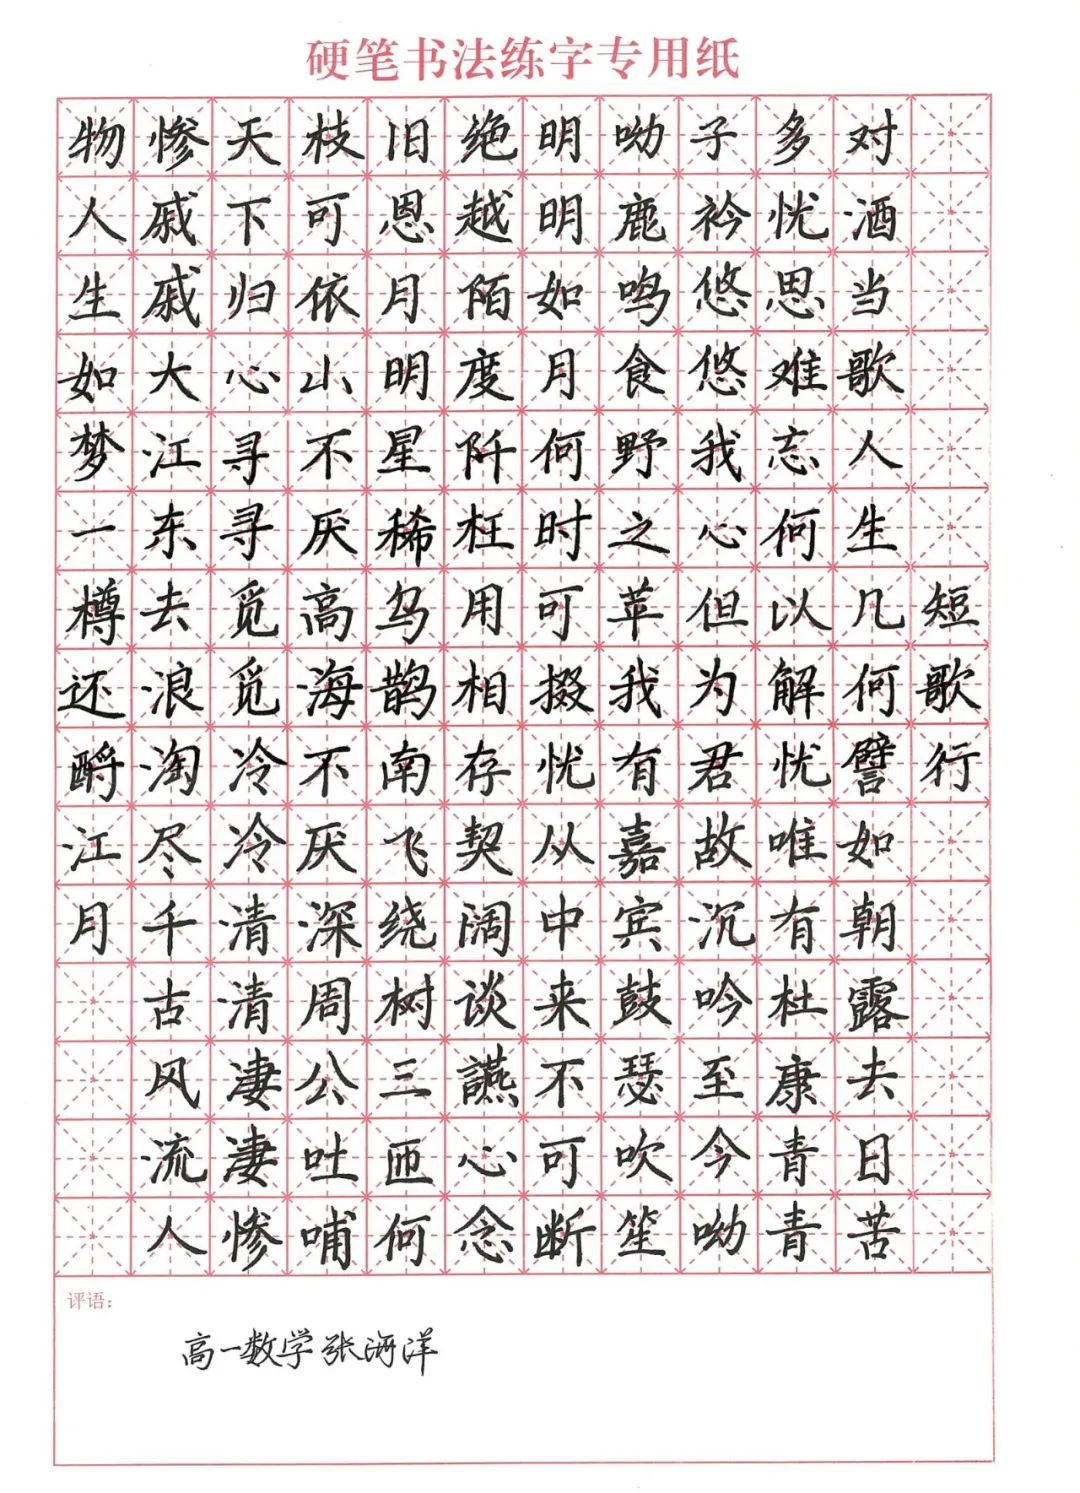 硬笔书法练字专用纸
短歌行
对酒当歌人生几何譬如朝露去日苦
多忧思难忘何以解忧唯有杜康青青
子衿悠悠我心但为君故沉吟至今呦
呦鹿鸣食野之苹我有嘉宾鼓瑟吹笙
明明如月何时可掇忧从中来不可断
绝越陌度阡枉用相存契阔谈讌心念
旧恩月明星稀乌鹊南飞绕树三匝何
枝可依山不厌高海不厌深周公吐哺
天下归心寻寻觅觅冷冷清清凄凄惨
惨戚戚大江东去浪淘尽千古风流人
物人生如梦一樽还酹江月
评语：
高一数学张海洋